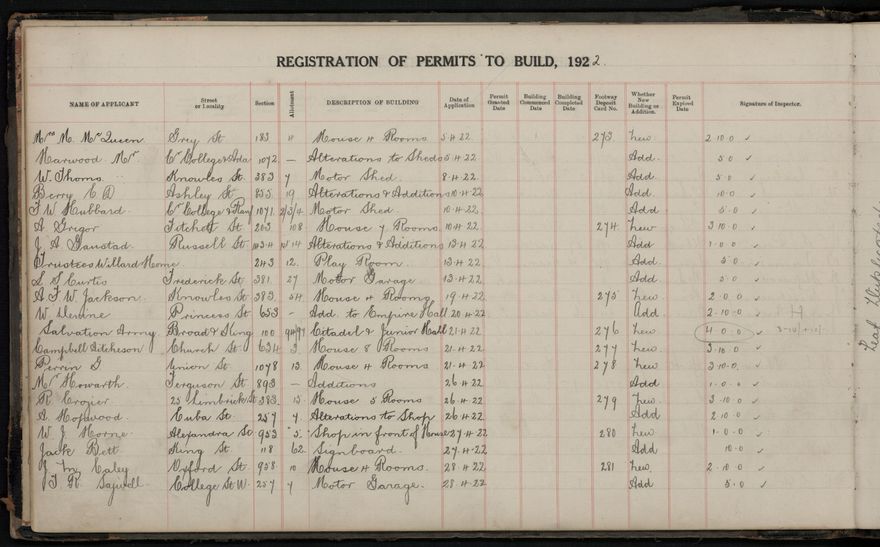 REGISTRATION OF PERMITS TO BUILD, 1922.
NAME OF APPLICANT Street or Locality Section Allotment DESCRIPTION OF BUILDING Date of Application Permit Granted Date Building Commenced Date Building Completed Date Footway Deposit Card No. Whether New Building or Addition. Permit Expired Date Signature of Inspector.
Mrs M. McQueen Grey St 183 11 House 4 Rooms 5.4.22 273 New 2.10.0 ✓
Marwood Mr Cr College & Ada 1072 — Alterations to Sheds 5.4.22 Add. 5.0 ✓
W. Thoms Knowles St. 383 7 Motor Shed. 8.4.22 Add. 5.0 ✓
Berry C D Ashley St 855 19 Alterations & Additions 10.4.22 Add. 10.0 ✓
F W Hubbard Cr College & 1071 2/3/4 Motor Shed 10.4.22 Add 5.0 ✓
A Grigor Fitchett St 203 108 House 7 Rooms 10.4.22 274 New 3.10.0 ✓
J. A Russell St 14 Alterations & Additions 13.4.22 Add 1.0.0 ✓
Trustees Willard Home 243 12. Play Room 13.4.22 Add. 5.0 ✓
S S Curtis Frederick St 381 27 Motor Garage 13.4.22 Add. 5.0 ✓
A F W Jackson Knowles St 383. 54 House 4 Rooms 19.4.22 275 New 2.0.0 ✓
W Devine Princess St 653 — Add. to Empire Hall 20.4.22 Add. 2.10.0 ✓
Salvation Army Broad & King 100 Citadel & Junior Hall 21.4.22 276 New 4.0.0 ✓
Campbell Aitcheson Church St 634 3 House 8 Rooms 21.4.22 277 New 3.10.0 ✓
Perrin G Union St 1078 13 House 4 Rooms 21.4.22 278 New 3.10.0. ✓
Mr Howarth Ferguson St 893 — Additions 26.4.22 Add 1.0.0 ✓
R Crozier 25 Limbrick St 383. 13 House 5 Rooms 26.4.22 279 New 3.10.0 ✓
A Hopwood Cuba St. 257 7. Alterations to Shop 26.4.22 Add 2.10.0 ✓
W J Horne Alexandra St 953 5. Shop in front of House 27.4.22 280 New 1.0.0 ✓
Jack Bett King St 118 62. Signboard. 27.4.22 Add 10.0 ✓
J. Caley Oxford St. 958. 10 House 4 Rooms. 28.4.22 281 New 2.10.0 ✓
J. R. College St W. 257 7 Motor Garage. 28.4.22 Add 5.0 ✓